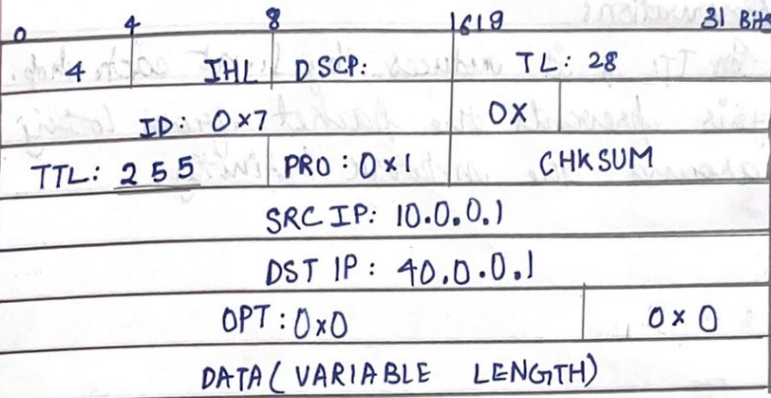 0 4 8 1619 31 Bits
4 IHL DSCP: TL: 28
ID: 0x7 0X
TTL: 255 PRO: 0x1 CHKSUM
SRC IP: 10.0.0.1
DST IP: 40.0.0.1
OPT: 0x0 0x0
DATA (VARIABLE LENGTH)